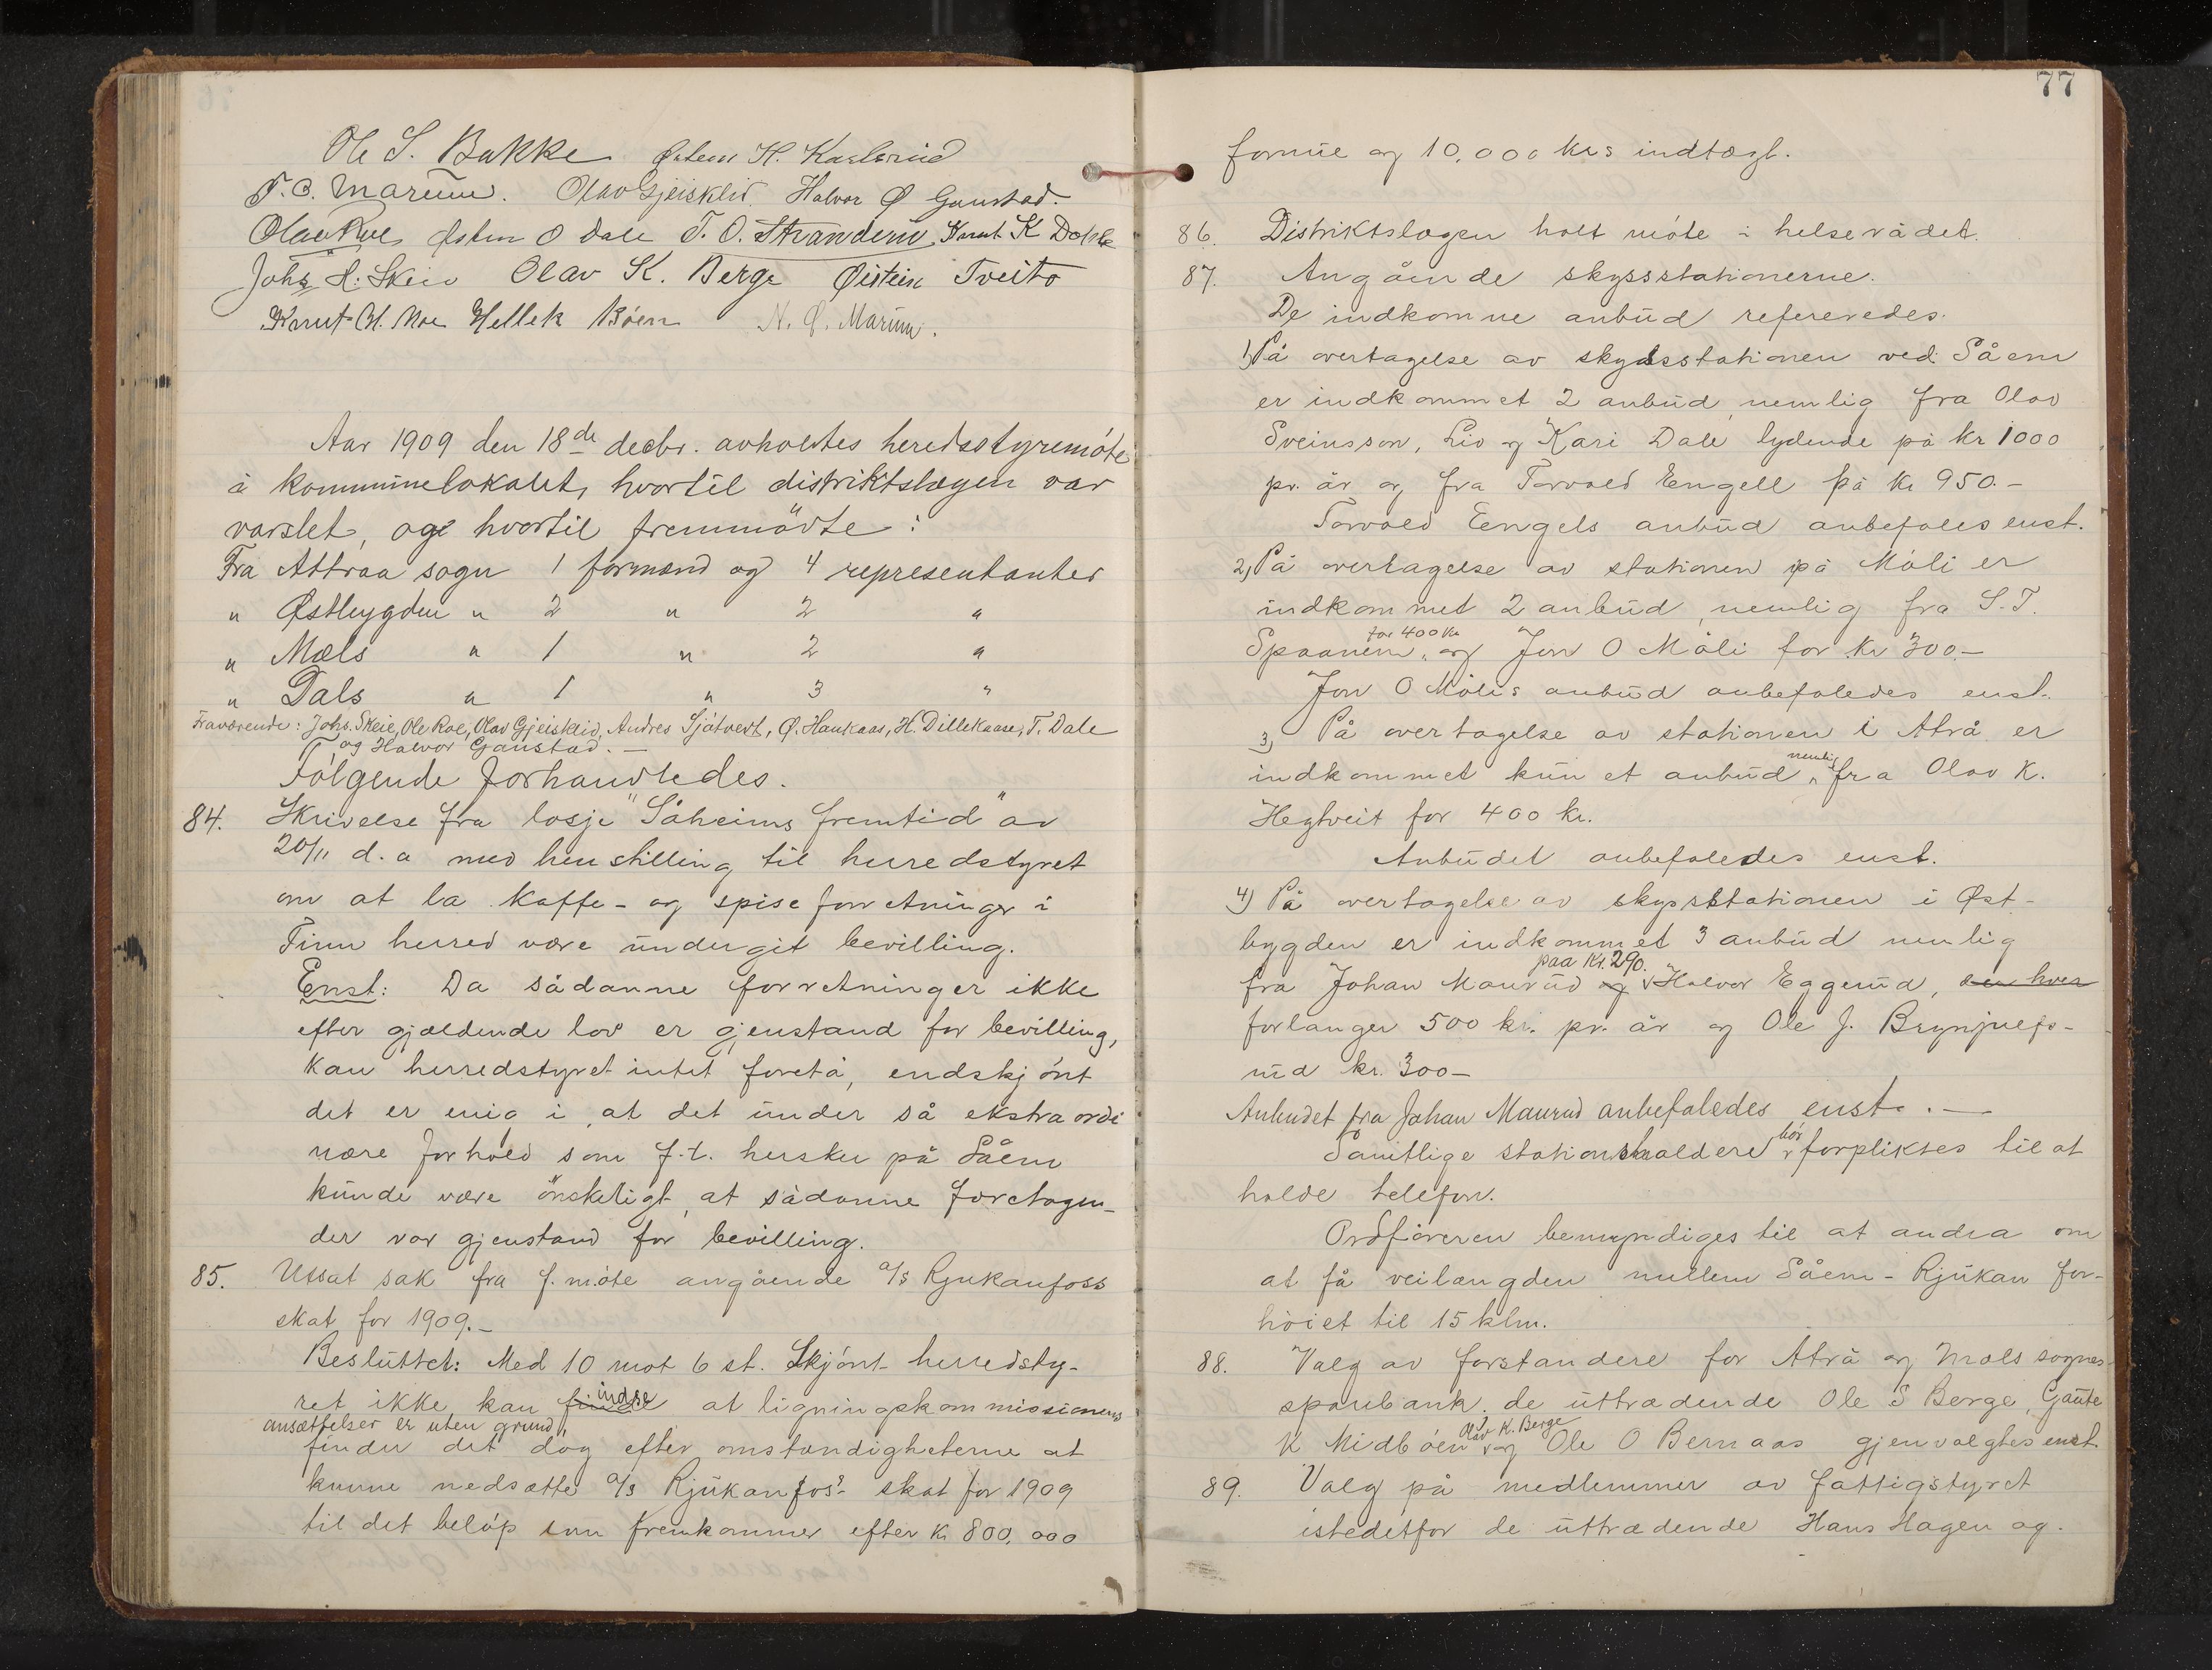 Ole S. Bakke Østein H. Kaslerud
T. C. Marum. Olav Gjeisklid. Halvor Ø Gaustad.
Olav Roe Østen O Dale T. O. Stranden. Knut K Dale
Johs H. Skeie Olav K. Berge Øistein Tveito
Knut H. Moe Hellek Bøen N. O. Marum.
Aar 1909 den 18de decbr. avholdtes heredsstyremøte
i kommunelokalet, hvortil distriktslægen var
varslet, og hvortil fremmødte:
Fra Attraa sogn 1 formænd og 4 representanter
" Østbygden " 2 " 2 "
" Mæls " 1 " 2 "
" Dals " 1 " 3 "
Fraværende: Johs. Skeie, Ole Roe, Olav Gjeisklid, Andres Sjåtvedt, Ø. Haukaas, H. Dillekaase, T. Dale
og Halvor Gaustad. —
Følgende forhandledes.
84. Skrivelse fra losje "Såheims fremtid" av
20/11 d.a med henstilling til herredstyret
om at la kaffe- og spiseforretninger i
Tinn herred være undergit bevilling.
Enst: Da sådanne forretninger ikke
efter gjældende lov er gjenstand for bevilling,
kan herredstyret intet foreta, endskjønt
det er enig i, at det under så ekstraordi
nære forhold som f.t. hersker på Såem
kunde være ønskeligt, at sådanne foretagen-
der var gjenstand for bevilling.
85. Utsat sak fra f. møte angående a/s Rjukanfoss
skat for 1909.—
Besluttet: Med 10 mot 6 st. Skjønt herredsty-
ret ikke kan finde indse at ligningskommissionens
ansættelser er uten grund,
finder det dog efter omstændigheterne at
kunne nedsætte a/s Rjukanfos's skat for 1909
til det beløp som fremkommer efter kr 800,000
77
formue og 10,000 krs indtægt.
86. Distriktslægen holt møte i helserådet.
87. Angående skyssstationerne.
De indkomne anbud refereredes.
1) På overtagelse av skydsstationen ved Såem
er indkommet 2 anbud, nemlig fra Olav
Sveinsson, Liv og Kari Dale lydende på kr 1000
pr. år og fra Torvald Engell på kr 950.—
Torvald Eengels anbud anbefales enst.
2) På overtagelse av stationen på Måli er
indkommet 2 anbud, nemlig fra S. T.
for 400 kr
Spaanem, og Jon O Måli for kr 300.—
Jon O Målis anbud anbefaledes enst.
3) På overtagelse av stationen i Atrå er
indkommet kun et anbud nemlig fra Olav K.
Hegtveit for 400 kr.
Anbudet anbefaledes enst.
4) På overtagelse av skyssstationen i Øst-
bygden er indkommet 3 anbud nemlig
paa Kr. 290.
fra Johan Maurud og Halvor Eggerud, som hver
forlanger 500 kr. pr. år og Ole J. Brynjulfs-
rud kr. 300—
Anbudet fra Johan Maurud anbefaledes enst. —
Samtlige stationsholdere bør forpliktes til at
holde telefon.
Ordføreren bemyndiges til at andra om
at få veilængden mellem Såem - Rjukan for-
høiet til 15 klm.
88. Valg av forstandere for Atrå og Mæls sognes
sparebank. de uttrædende Ole S Berge, Gaute
Olav K. Berge
K Midbøen og Ole O Bernaas gjenvalgtes enst.
89. Valg på medlemmer av fattigstyret
istedetfor de uttrædende Hans Hagen og